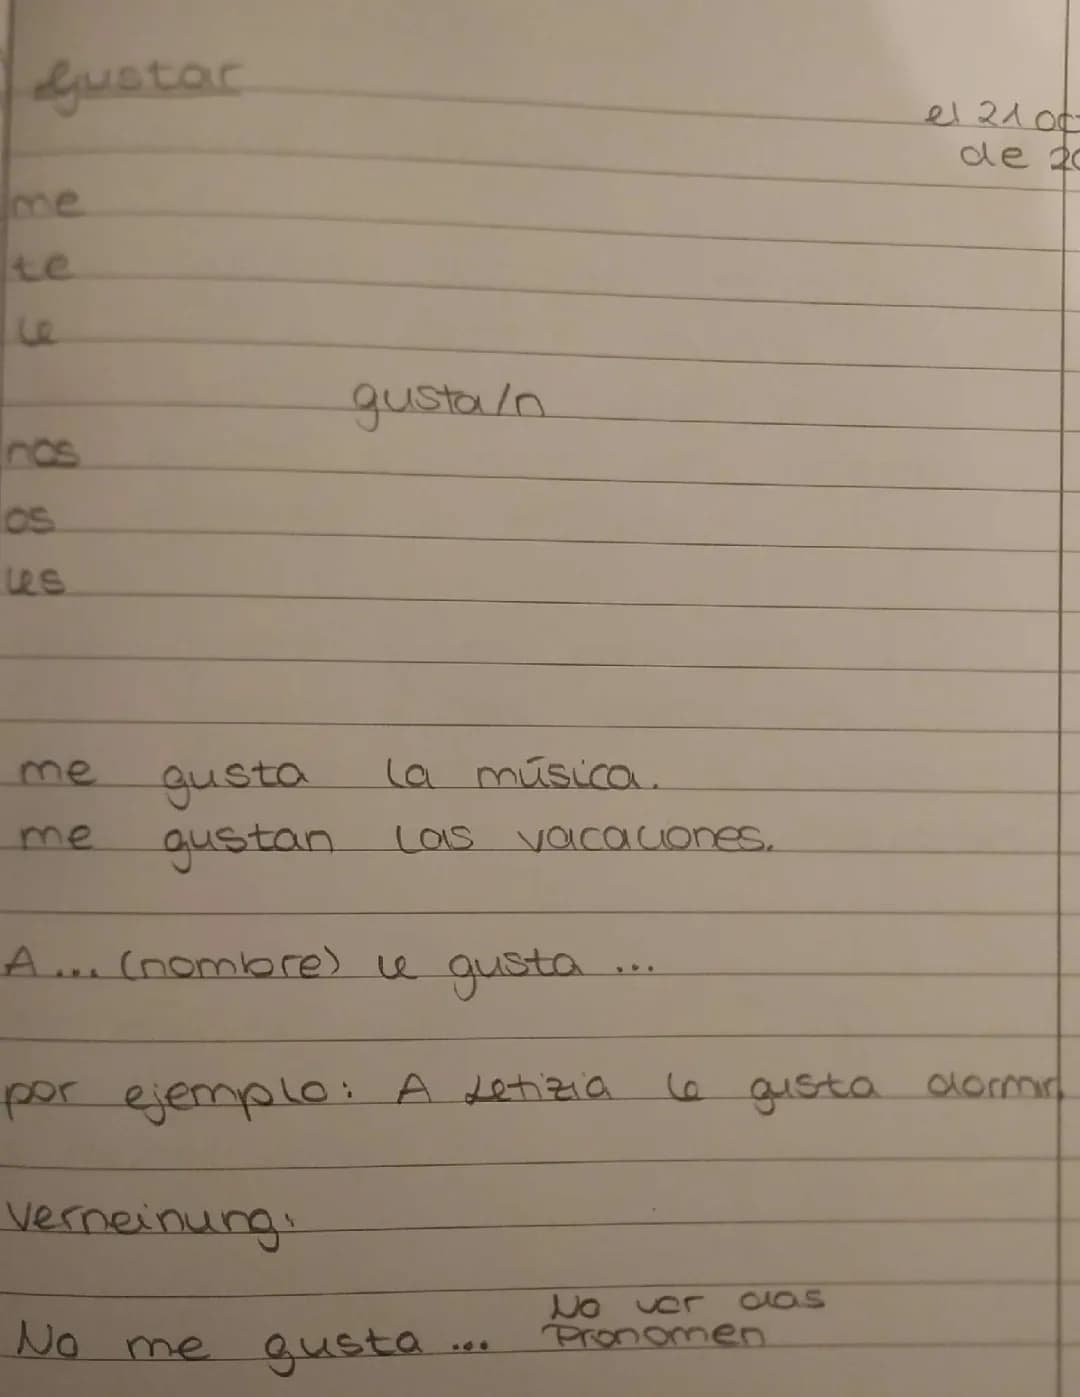 gustar
el 21
de
me
te
le
gusta/n
nos
os
les
me gusta la música.
me gustan las vacaciones.
A ... (nombre) le gusta ...
por ejemplo: A Letizia le gusta dormir
Verneinung:
No vor das
No me gusta ... Pronomen